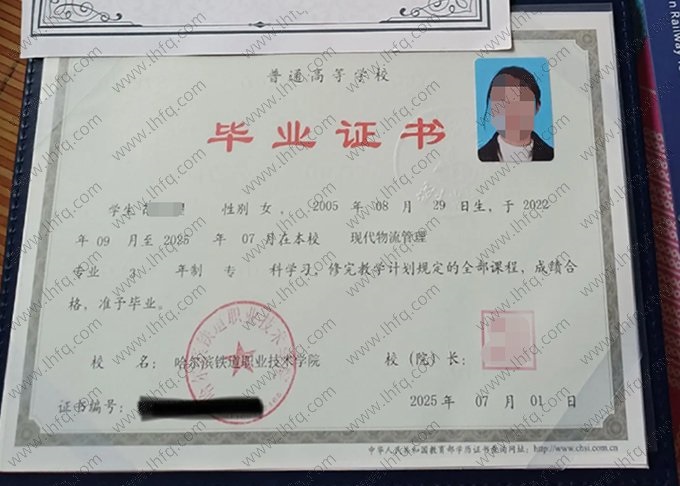 普通高等学校
毕业证书
学生 性别 女, 2005 年 08 月 29 日生,于 2022
年 09 月至 2025 年 07 月在本校 现代物流管理
专业 3 年制 专 科学习,修完教学计划规定的全部课程,成绩合
格,准予毕业。
校 名: 哈尔滨铁道职业技术学院 校(院)长:
证书编号: 2025 年 07 月 01 日
中华人民共和国教育部学历证书查询网址: http://www.chsi.com.cn
www.lhfq.com